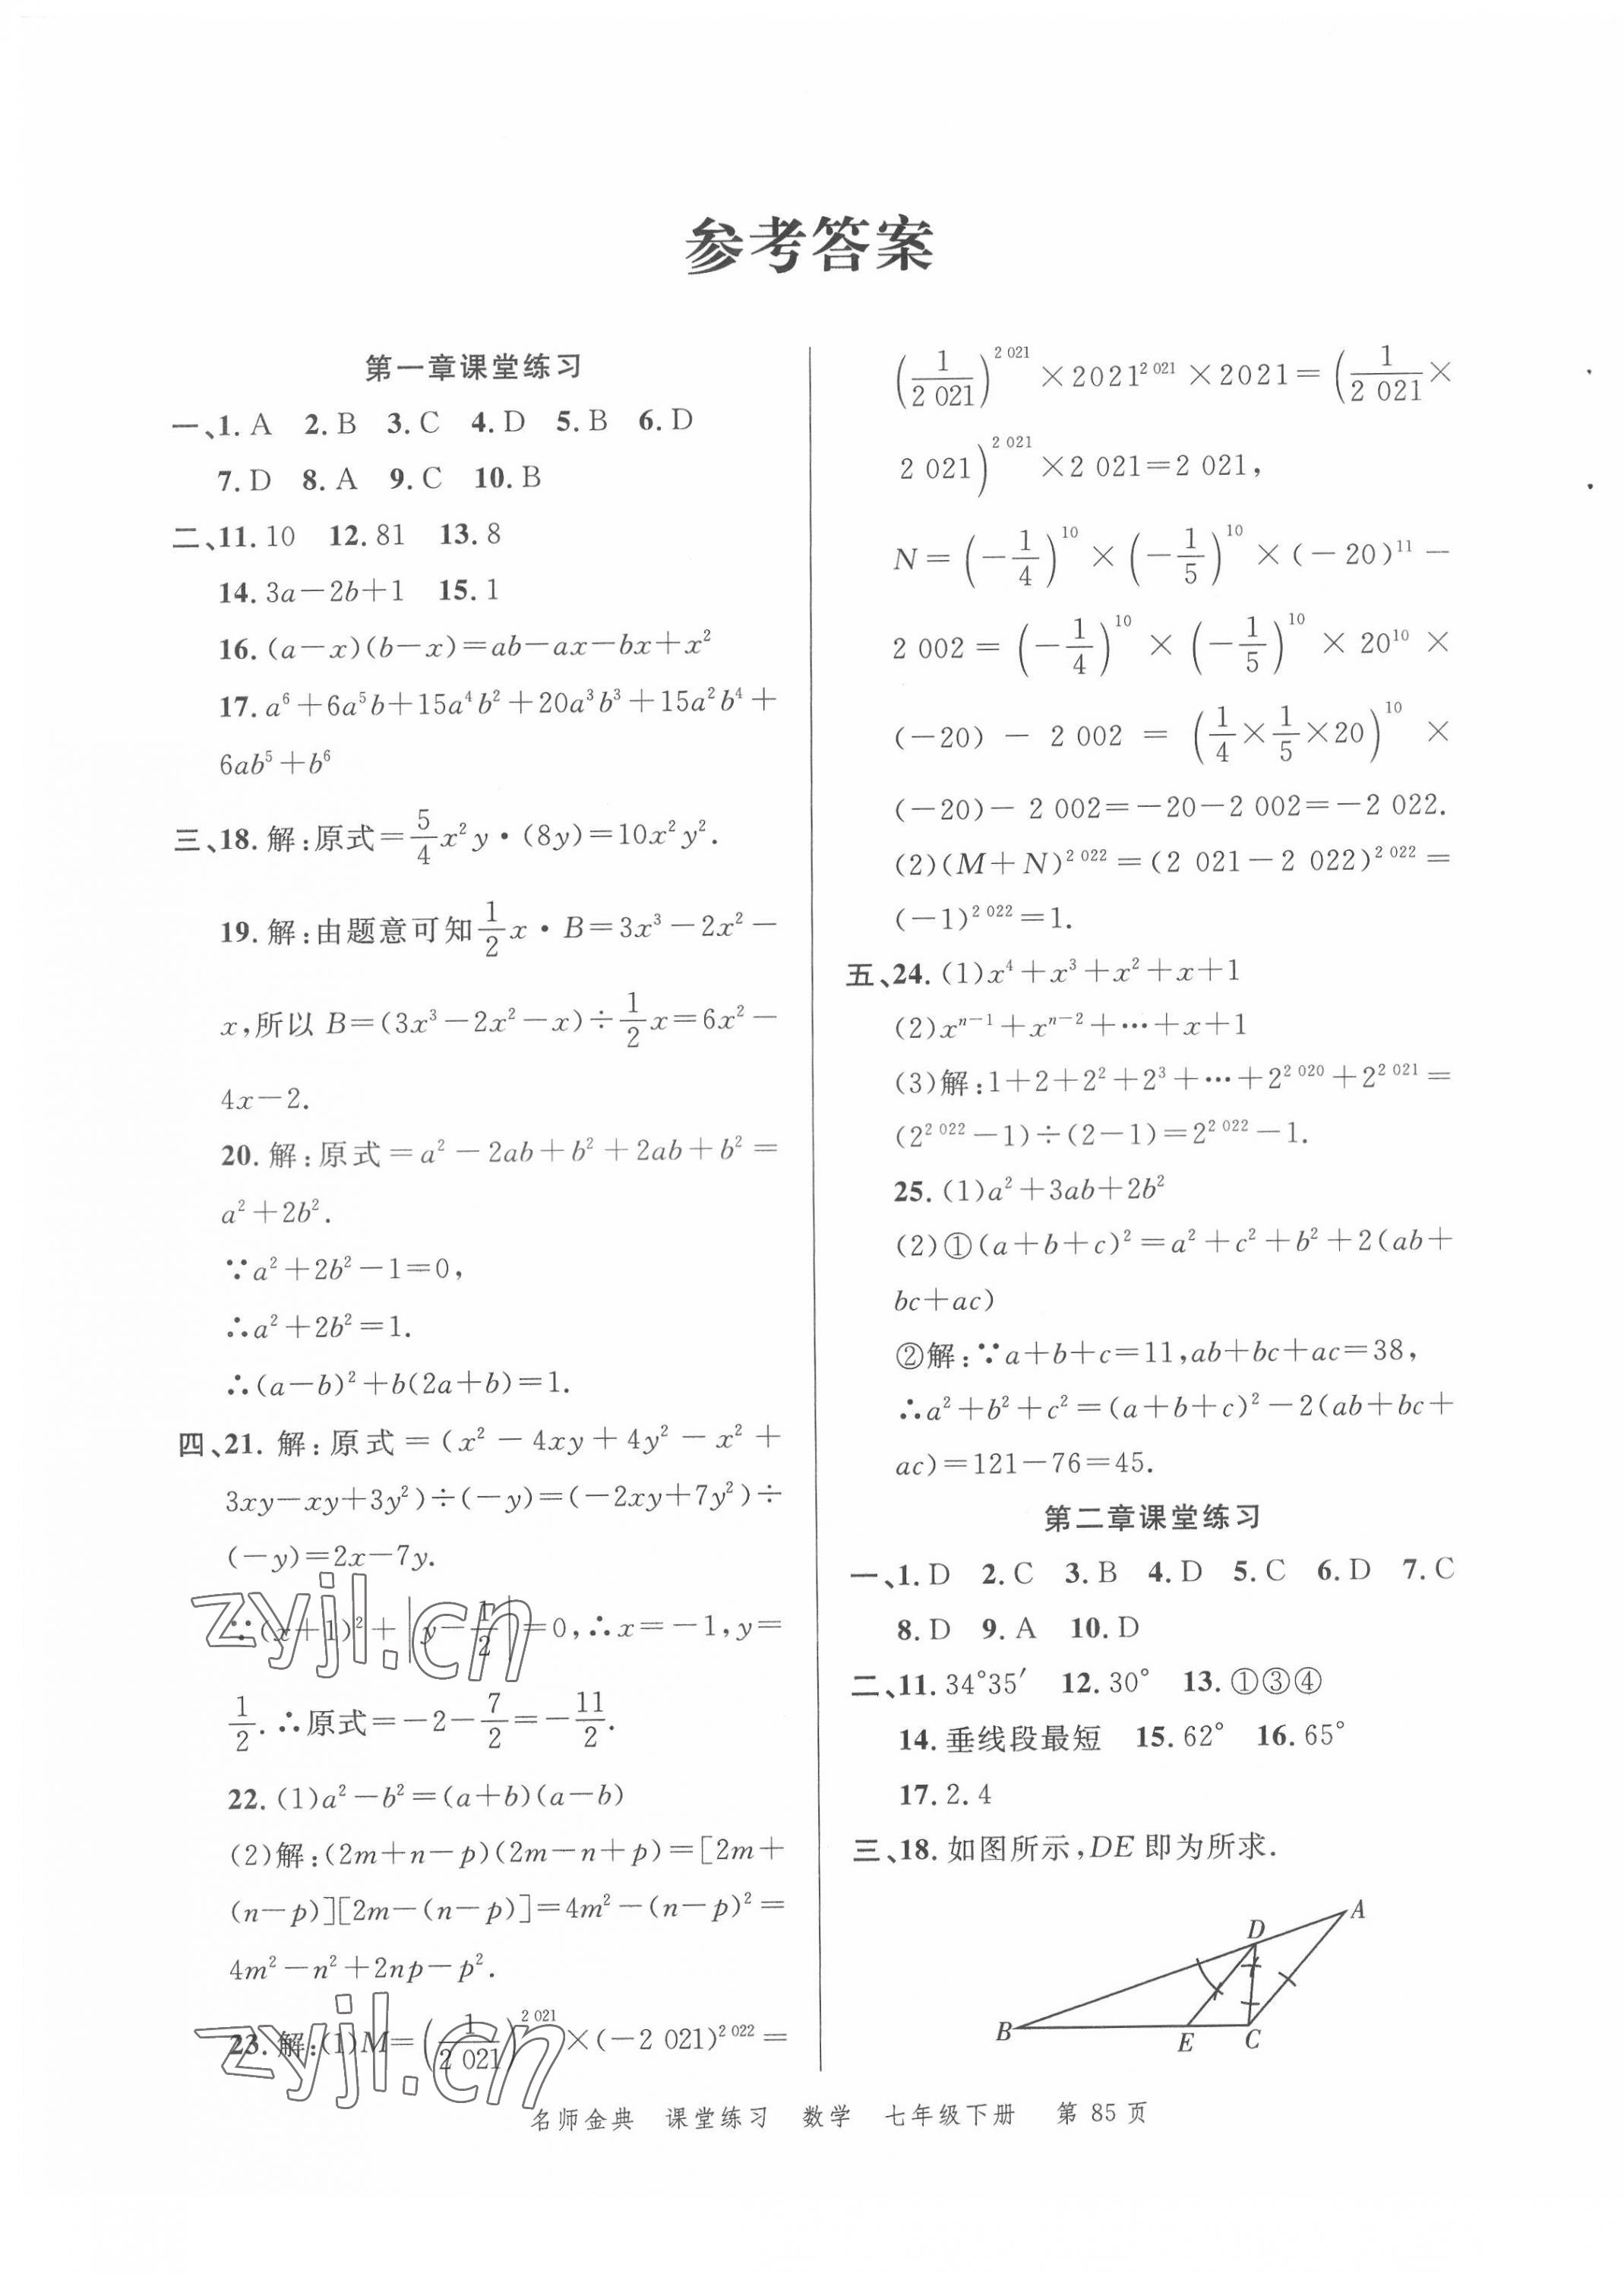 参考答案
第一章课堂练习
一、1. A 2. B 3. C 4. D 5. B 6. D
7. D 8. A 9. C 10. B
二、11. 10 12. 81 13. 8
14. 3a－2b＋1 15. 1
16. (a－x)(b－x)＝ab－ax－bx＋x²
17. a⁶＋6a⁵b＋15a⁴b²＋20a³b³＋15a²b⁴＋
6ab⁵＋b⁶
三、18. 解：原式＝5/4x²y·(8y)＝10x²y².
19. 解：由题意可知1/2x·B＝3x³－2x²－
x，所以 B＝(3x³－2x²－x)÷1/2x＝6x²－
4x－2.
20. 解：原式＝a²－2ab＋b²＋2ab＋b²＝
a²＋2b².
∵a²＋2b²－1＝0，
∴a²＋2b²＝1.
∴(a－b)²＋b(2a＋b)＝1.
四、21. 解：原式＝(x²－4xy＋4y²－x²＋
3xy－xy＋3y²)÷(－y)＝(－2xy＋7y²)÷
(－y)＝2x－7y.
∵(x＋1)²＋|y－1/2|＝0，∴x＝－1，y＝
1/2. ∴原式＝－2－7/2＝－11/2.
22. (1)a²－b²＝(a＋b)(a－b)
(2)解：(2m＋n－p)(2m－n＋p)＝[2m＋
(n－p)][2m－(n－p)]＝4m²－(n－p)²＝
4m²－n²＋2np－p².
23. 解：(1)M＝(1/2 021)^2 021×(－2 021)^2 022＝
(1/2 021)^2 021×2021^2 021×2021＝(1/2 021×
2 021)^2 021×2 021＝2 021，
N＝(－1/4)¹⁰×(－1/5)¹⁰×(－20)¹¹－
2 002＝(－1/4)¹⁰×(－1/5)¹⁰×20¹⁰×
(－20)－2 002＝(1/4×1/5×20)¹⁰×
(－20)－2 002＝－20－2 002＝－2 022.
(2)(M＋N)^2 022＝(2 021－2 022)^2 022＝
(－1)^2 022＝1.
五、24. (1)x⁴＋x³＋x²＋x＋1
(2)xⁿ⁻¹＋xⁿ⁻²＋…＋x＋1
(3)解：1＋2＋2²＋2³＋…＋2^2 020＋2^2 021＝
(2^2 022－1)÷(2－1)＝2^2 022－1.
25. (1)a²＋3ab＋2b²
(2)①(a＋b＋c)²＝a²＋c²＋b²＋2(ab＋
bc＋ac)
②解：∵a＋b＋c＝11，ab＋bc＋ac＝38，
∴a²＋b²＋c²＝(a＋b＋c)²－2(ab＋bc＋
ac)＝121－76＝45.
第二章课堂练习
一、1. D 2. C 3. B 4. D 5. C 6. D 7. C
8. D 9. A 10. D
二、11. 34°35′ 12. 30° 13. ①③④
14. 垂线段最短 15. 62° 16. 65°
17. 2.4
三、18. 如图所示，DE 即为所求.
A
D
B
E
C
zyjl.cn
zyjl.cn
名师金典 课堂练习 数学 七年级下册 第 85 页